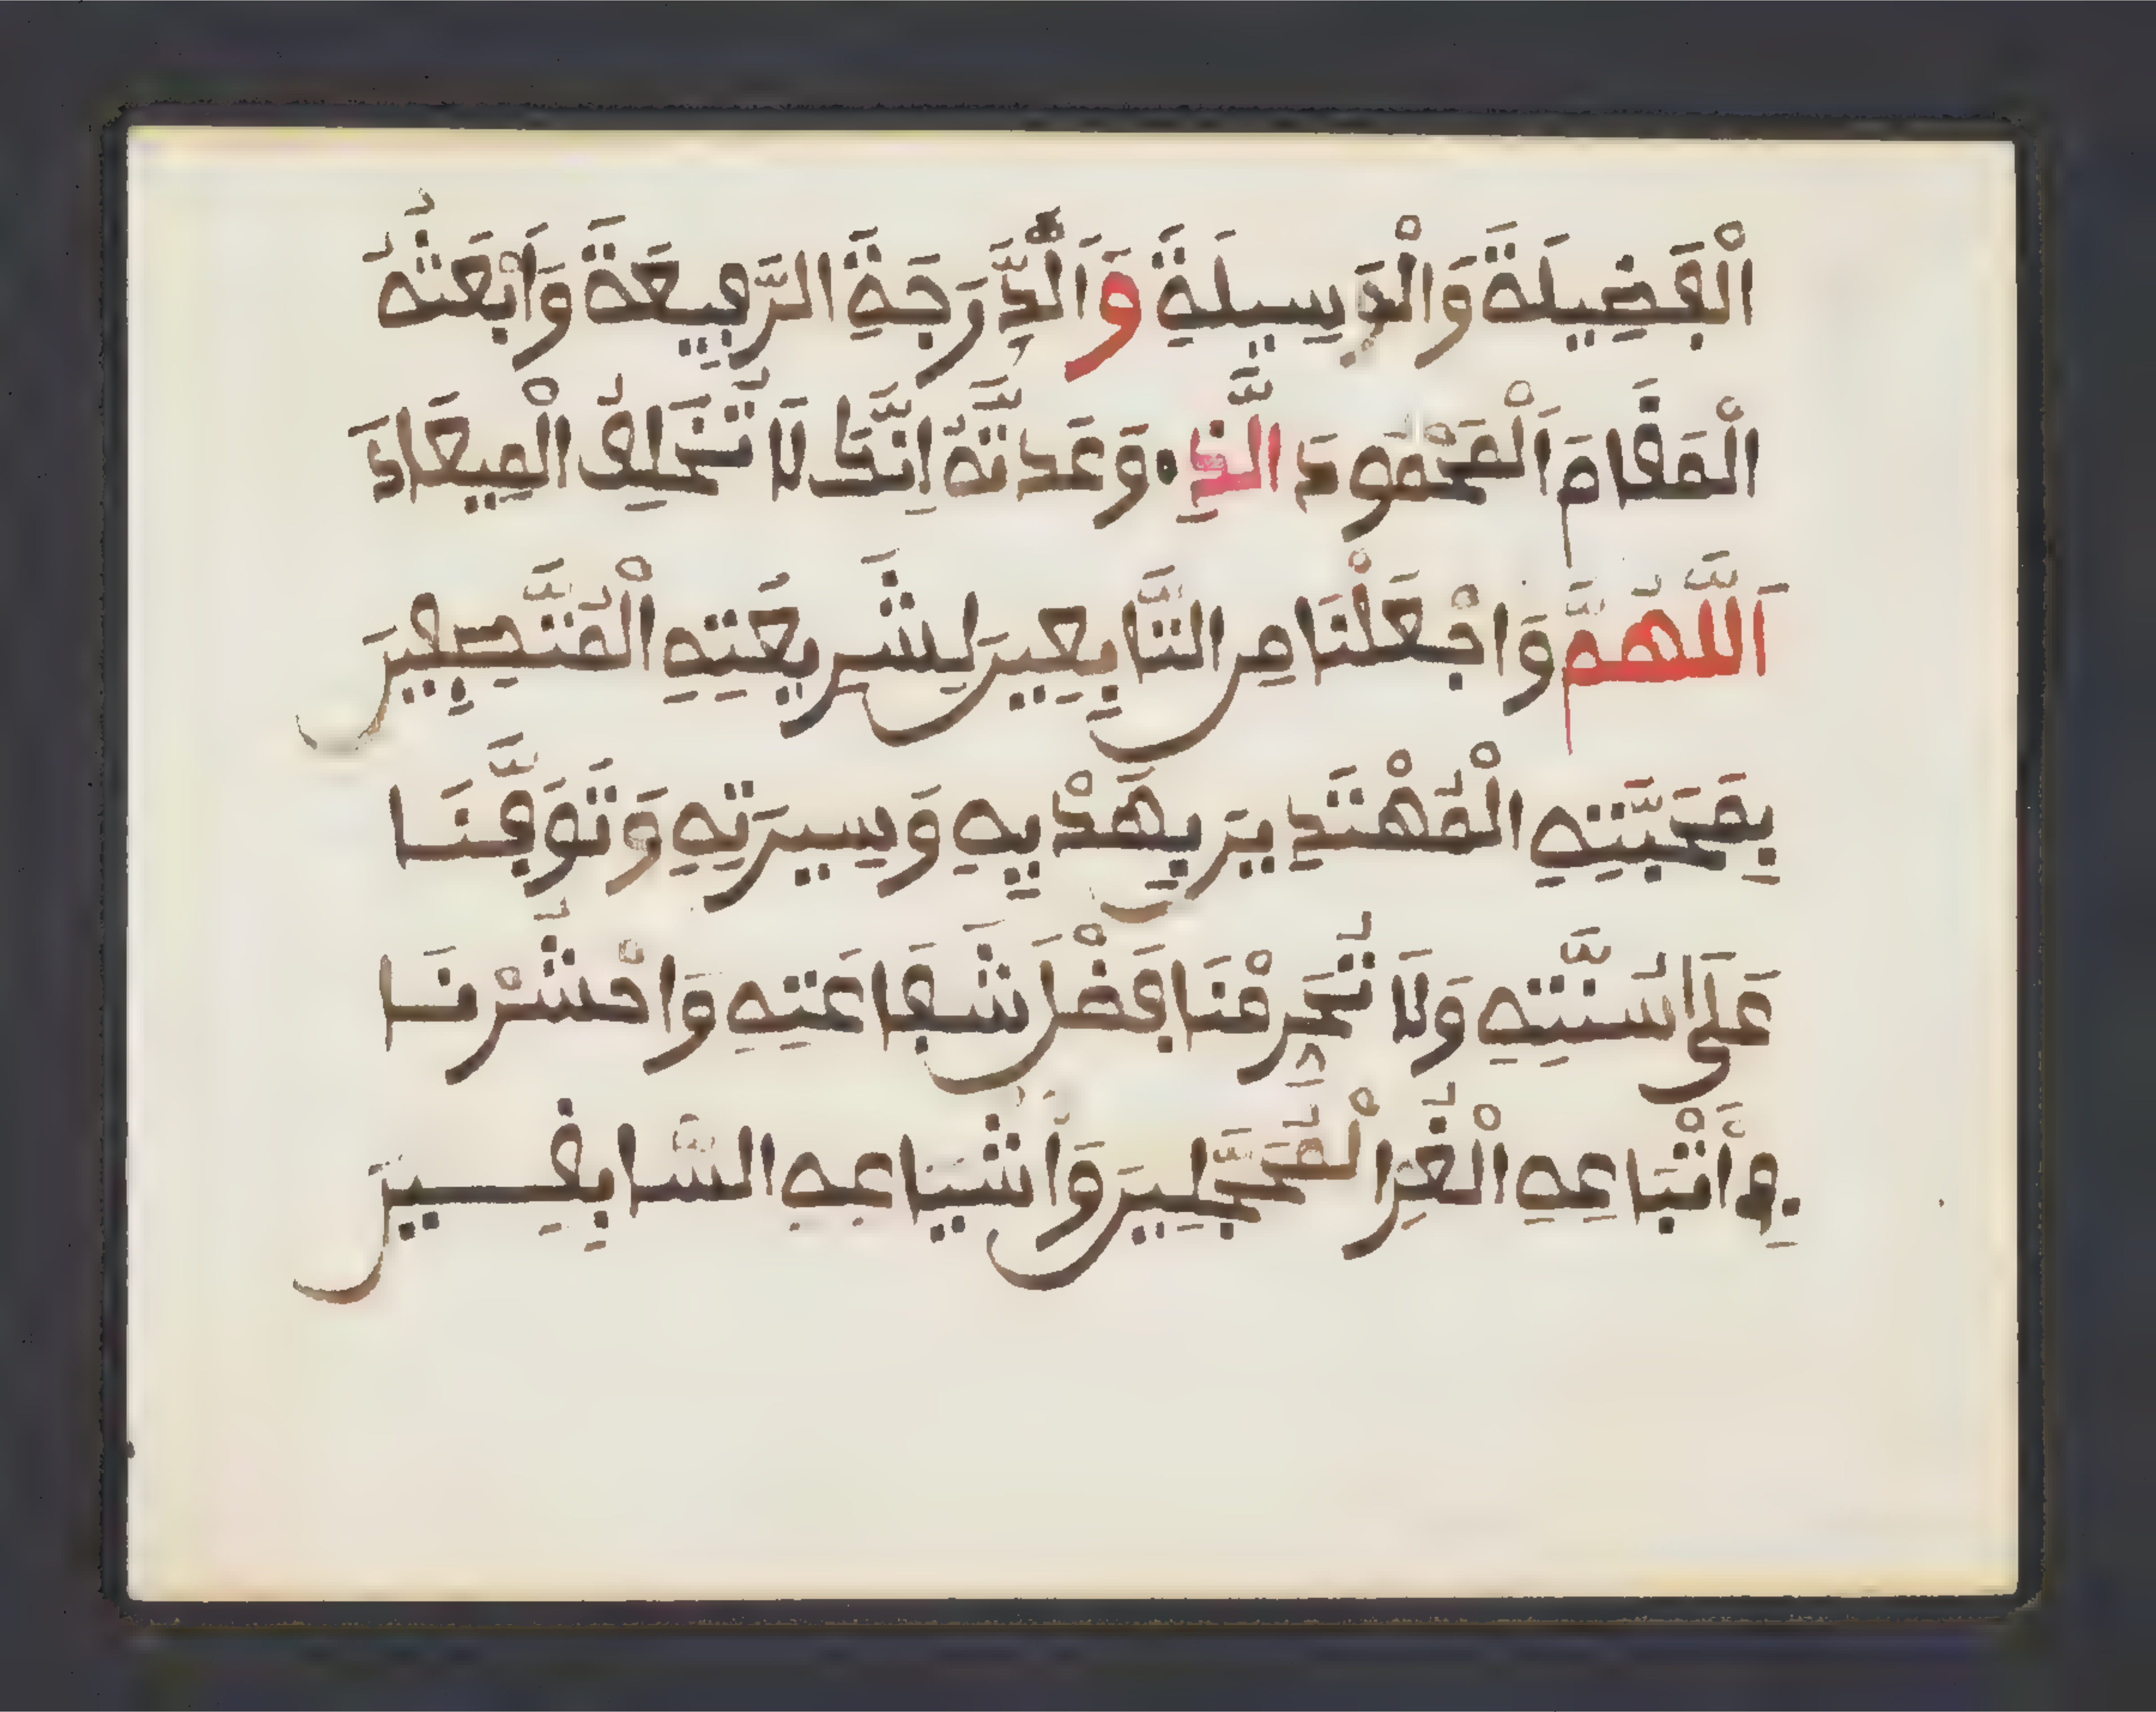 الْفَضِيلَةَ وَالْوَسِيلَةَ وَالدَّرَجَةَ الرَّفِيعَةَ وَابْعَثْهُ
الْمَقَامَ الْمَحْمُودَ الَّذِي وَعَدتَّهُ إِنَّكَ لَا تُخْلِفُ الْمِيعَادَ
اَللَّهُمَّ وَاجْعَلْنَا مِنَ التَّابِعِينَ لِشَرِيعَتِهِ الْمُتَّصِفِينَ
بِمَحَبَّتِهِ الْمُهْتَدِينَ بِهَدْيِهِ وَسِيرَتِهِ وَتَوَفَّنَا
عَلَى سُنَّتِهِ وَلَا تُحْرِمْنَا فَضْلَ شَفَاعَتِهِ وَاحْشُرْنَا
فِي أَتْبَاعِهِ الْغُرِّ الْمُحَجَّلِينَ وَأَشْيَاعِهِ السَّابِقِينَ